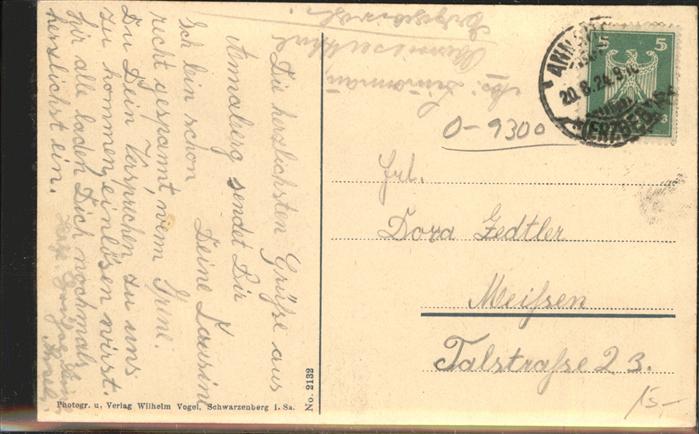 Die herzlichsten Grüße aus
Annaberg sendet Dir
Deine Cousine
Ich bin schon
recht gespannt, wenn
Du Dein Versprechen zu uns
zu kommen, einlösen wirst.
Wir alle laden Dich nochmals
herzlichst ein.
Photogr. u. Verlag Wilhelm Vogel, Schwarzenberg i. Sa.
No. 2132
Erzgebirge
5
5
20.8.24.9
(ERZGEB.)
O-9300
Frl.
Dora Zedtler
Meißen
Talstraße 23.
15,-